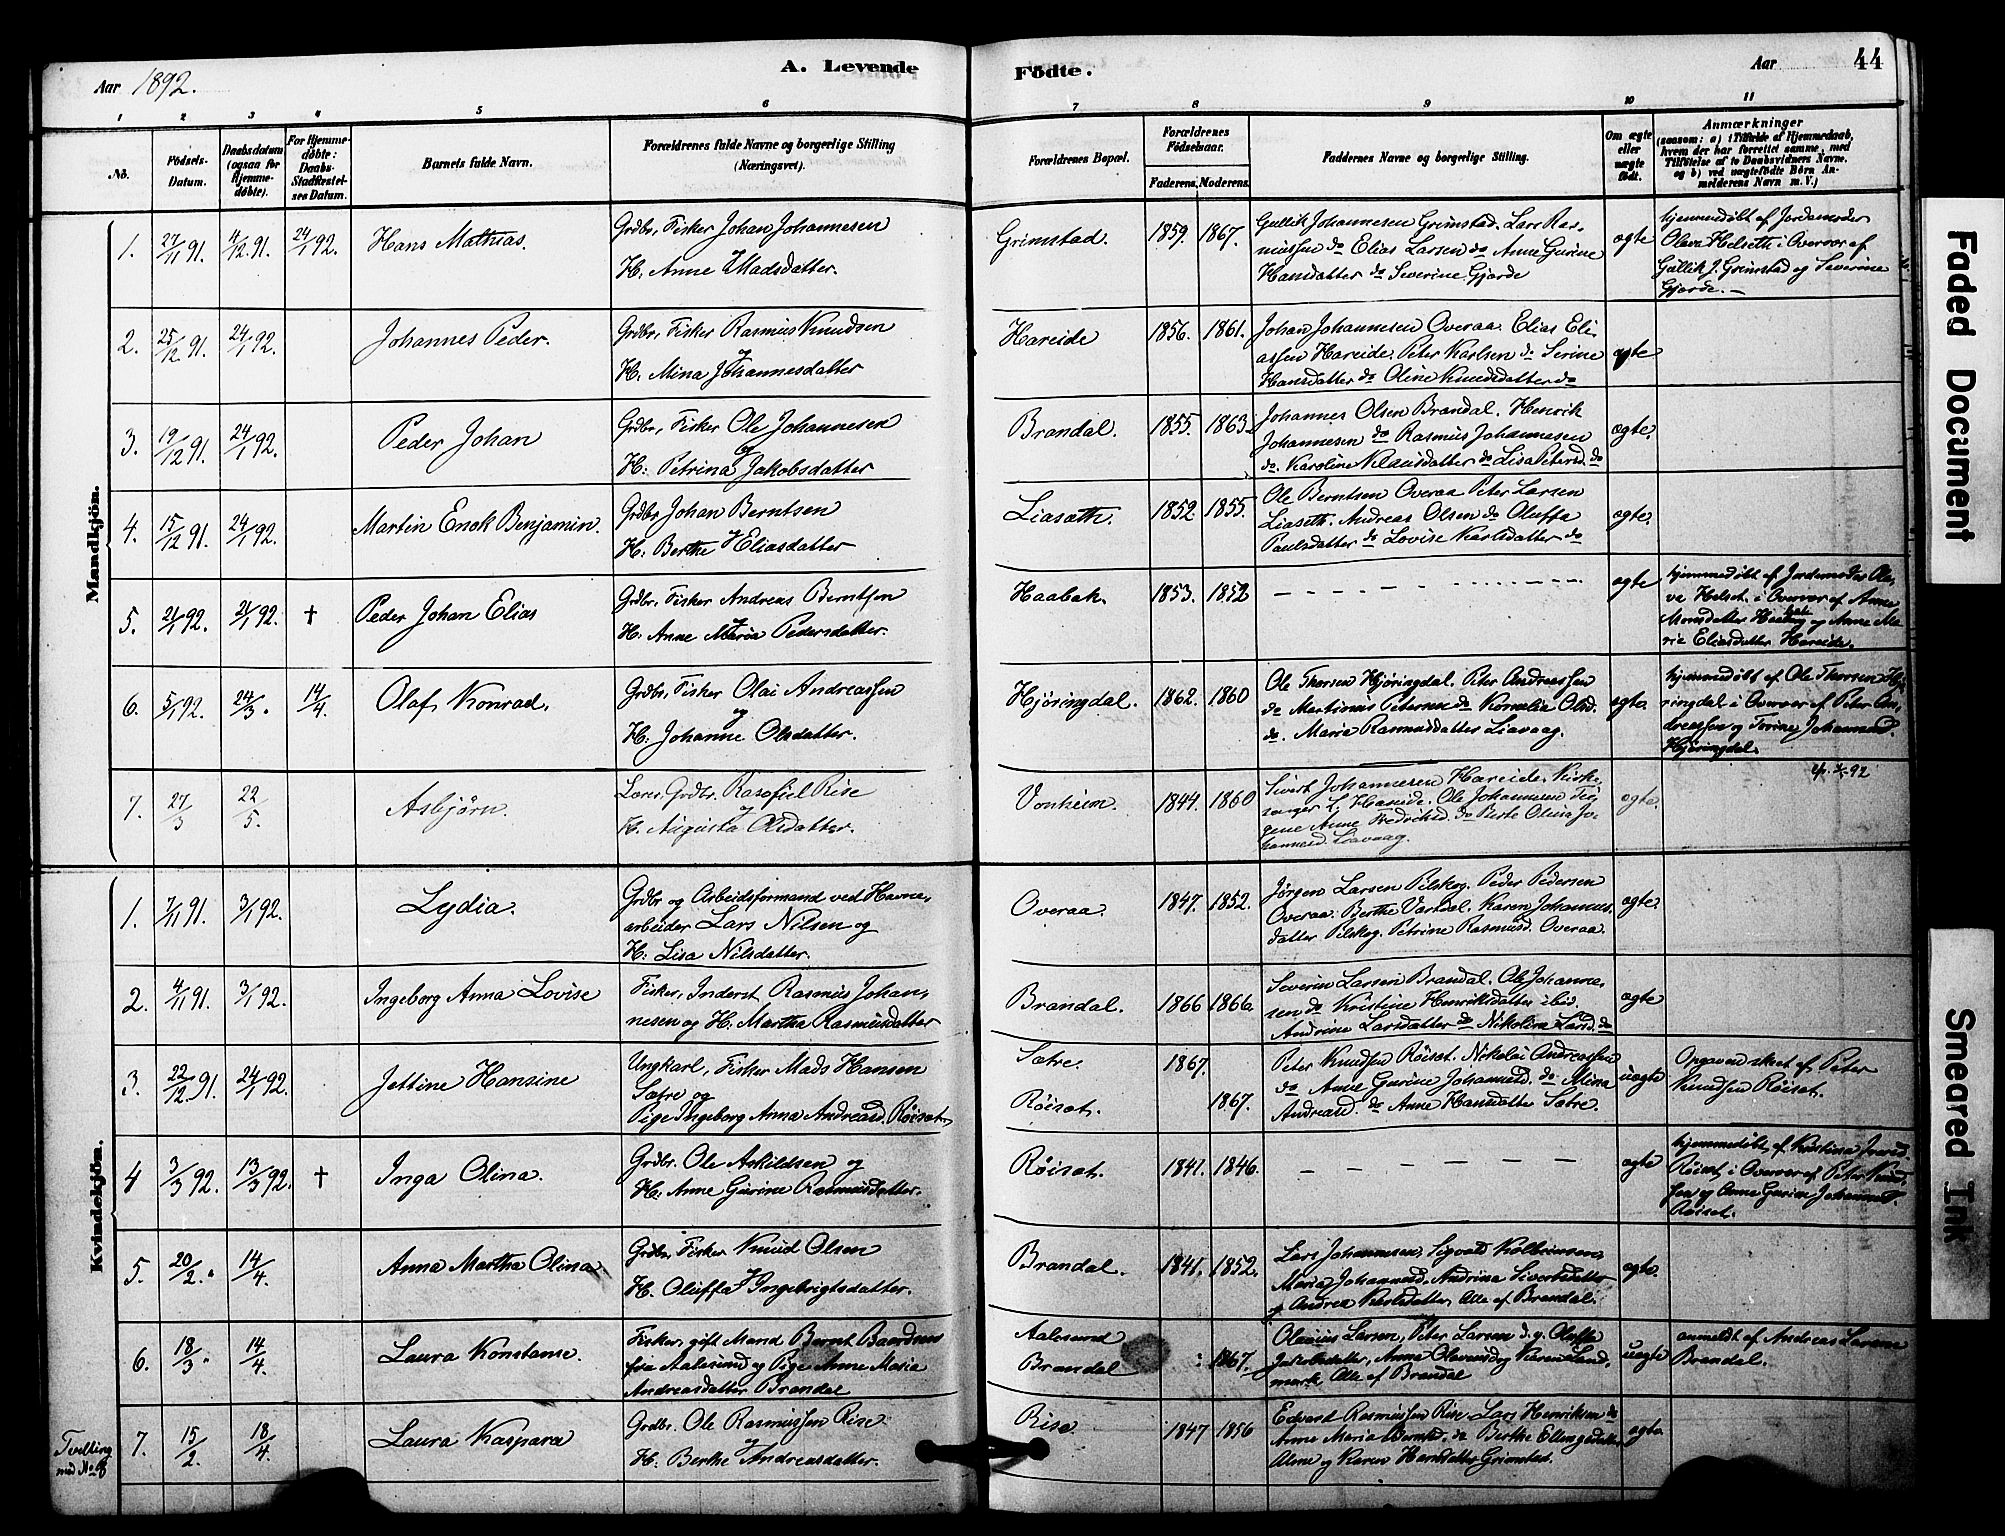 Aar 1892.
A. Levende
Födte.
Aar
44
1 2 3 4 5 6 7 8 9 10 11
No.
Födsels-
Datum.
Daabsdatum
(ogsaa for
Hjemme-
döbte).
For Hjemme-
döbte:
Daabs-
Stadfæstel-
ses Datum.
Barnets fulde Navn.
Forældrenes fulde Navne og borgerlige Stilling
(Næringsvei).
Forældrenes Bopæl.
Forældrenes
Födselsaar.
Faderens. Moderens.
Faddernes Navne og borgerlige Stilling.
Om ægte
eller
uægte
født.
Anmærkninger
(saasom: a) i Tilfælde af Hjemmedaab,
hvem der har forrettet samme, med
Tilföielse af to Daabsvidners Navne.
og b) ved uægtefödte Börn An-
melderens Navn m. V.)
Mandkjön.
1. 27/11 91. 4/12 91. 24/1 92. Hans Mathias.
Grdbr. Fisker Johan Johannesen
og
H. Anne Madsdatter.
Grimstad. 1859. 1867.
Gullik Johannesen Grimstad, Lars Ras-
mussen do Elias Larsen do Anne Gurine
Hansdatter do Severine Gjerde
ægte
hjemmedöbt af Jordemoder
Olava Helseth i Overvær af
Gullik J. Grimstad og Severine
Gjerde.
2. 25/12 91. 24/1 92. Johannes Peder.
Grdbr. Fisker Rasmus Knudsen
og
H. Mina Johannesdatter
Hareide 1856. 1861.
Johan Johannesen Overaa. Elias Eli-
assen Hareide. Peter Karlsen do Serine
Hansdatter do Oline Knudsdatter do
ægte
3. 19/12 91. 24/1 92. Peder Johan
Grdbr. Fisker Ole Johannesen
og
H: Petrina Jakobsdatter
Brandal. 1855. 1863.
Johannes Olsen Brandal. Henrik
Johannesen do Rasmus Johannesen
do. Karoline Klausdatter do Lisa Petersd. do
ægte.
4. 15/12 91. 24/1 92. Martin Enok Benjamin.
Grdbr. Johan Berntsen
og
H. Berthe Eliasdatter
Liasæth. 1852. 1855.
Ole Berntsen Overaa Peter Larsen
Liaseth. Andreas Olsen do Oluffa
Paulsdatter do Lovise Karlsdatter do
ægte.
5. 21/1 92. 24/1 92. † Peder Johan Elias
Grdbr. Fisker Andreas Berntsen
og
H. Anne Maria Pedersdatter.
Haabak. 1853. 1852
ægte
hjemmedöbt af Jordemoder Ola-
va Helset i Overvær af Anne
Monsdatter Haabak og Anne Ma-
rie Eliasdatter Hareide.
6. 5/1 92. 24/3 " 14/4. Olaf Konrad.
Grdbr. Fisker Olai Andreassen
og
H. Johanne Olsdatter.
Hjöringdal. 1862. 1860
Ole Thorsen Hjöringdal. Peter Andreassen
do Martinus Petersen do Kornelia Olsd.
do. Marie Rasmusdatter Liavaag.
ægte.
hjemmedöbt af Ole Thorsen Hjö-
ringdal i Overvær af Peter An-
dreassen og Torine Johannesd.
Hjöringdal.
7. 27/3 22/5. Asbjörn.
Grdbr. Rasofiel Rise
og
H. Augusta Olsdatter.
Vonheim. 1844. 1860
Sivert Johannesen Hareide. Kirke-
sanger L. Hareide. Ole Johannesen
Anne Fredriksd. do Berte Olina Jo-
hannesd. Liavaag.
ægte.
Kvindekjön.
1. 7/11 91. 3/1 92. Lydia.
Grdbr og Arbeidsformand ved Havne-
arbeider Lars Nilsen og
H. Lisa Nilsdatter.
Overaa. 1847. 1852.
Jørgen Larsen Pilskog. Peder Pedersen
Overaa. Berthe Vartdal. Karen Johannes-
datter Pilskog. Petrine Rasmusd. Overaa.
ægte.
2. 4/11 91. 3/1 92. Ingeborg Anna Lovise
Fisker, Inderst Rasmus Johan-
nesen og H. Martha Rasmusdatter
Brandal. 1866 1866.
Severin Larsen Brandal. Ole Johanne-
sen do Kristine Henriksdatter ibid.
Andrine Larsdatter do Nikolina Larsd. do
ægte
3. 22/12 91. 24/1 92. Jettine Hansine
Ungkarl, Fisker Mads Hansen
Sætre og
Pige Ingeborg Anna Andreasd. Röiset.
Sætre. 1867.
Röiset. 1867.
Peter Knudsen Röiset. Nikolai Andreassen
do Anne Gurine Johannesd. do Mina
Andreasd. do Anne Hansdatter Sætre.
uægte
Opgaven skeet af Peter
Knudsen Röiset.
4 3/3 92. 13/3 92. † Inga Olina.
Grdbr. Ole Askildsen og
H. Anne Gurine Rasmusdatter.
Röiset. 1841. 1846.
ægte
hjemmedöbt af Kristina Iversd.
Röiset, i Overvær af Peter Knud-
sen og Anne Gurine Johannesd.
Röiset.
5. 20/2. " 14/4. Anna Martha Olina.
Grdbr. Fisker Knud Olsen
og
H. Oluffa Ingebrigtsdatter.
Brandal. 1841. 1852.
Lars Johannesen, Sigvald Kolbeinsen,
Maria Johannesd. Andrina Sivertsdatter
og Andrea Karlsdatter, Alle af Brandal.
ægte.
6. 18/3 " 14/4. Laura Konstanse.
Fisker, gift Mand Bernt Baardsen
fra Aalesund og Pige Anne Maria
Andreasdatter Brandal
Aalesund
Brandal 1867.
Olaus Larsen, Peter Larsen d. y. Oluffa
Jakobsdatter, Anna Olavensd. og Karen Land-
mark Alle af Brandal
uægte
anmeldt af Andreas Larsen
Brandal.
Tvilling
med No 8
7. 15/2. 18/4. Laura Kaspara
Grdbr. Ole Rasmussen Rise
og
H. Berthe Andreasdatter.
Rise 1847 1856
Edvard Rasmussen Rise. Lars Henriksen do
Anne Maria Berntsd. do Berthe Ellingsdatter
Aline og Karen Hansdatter Grimstad.
ægte.
Faded Document
Smeared Ink